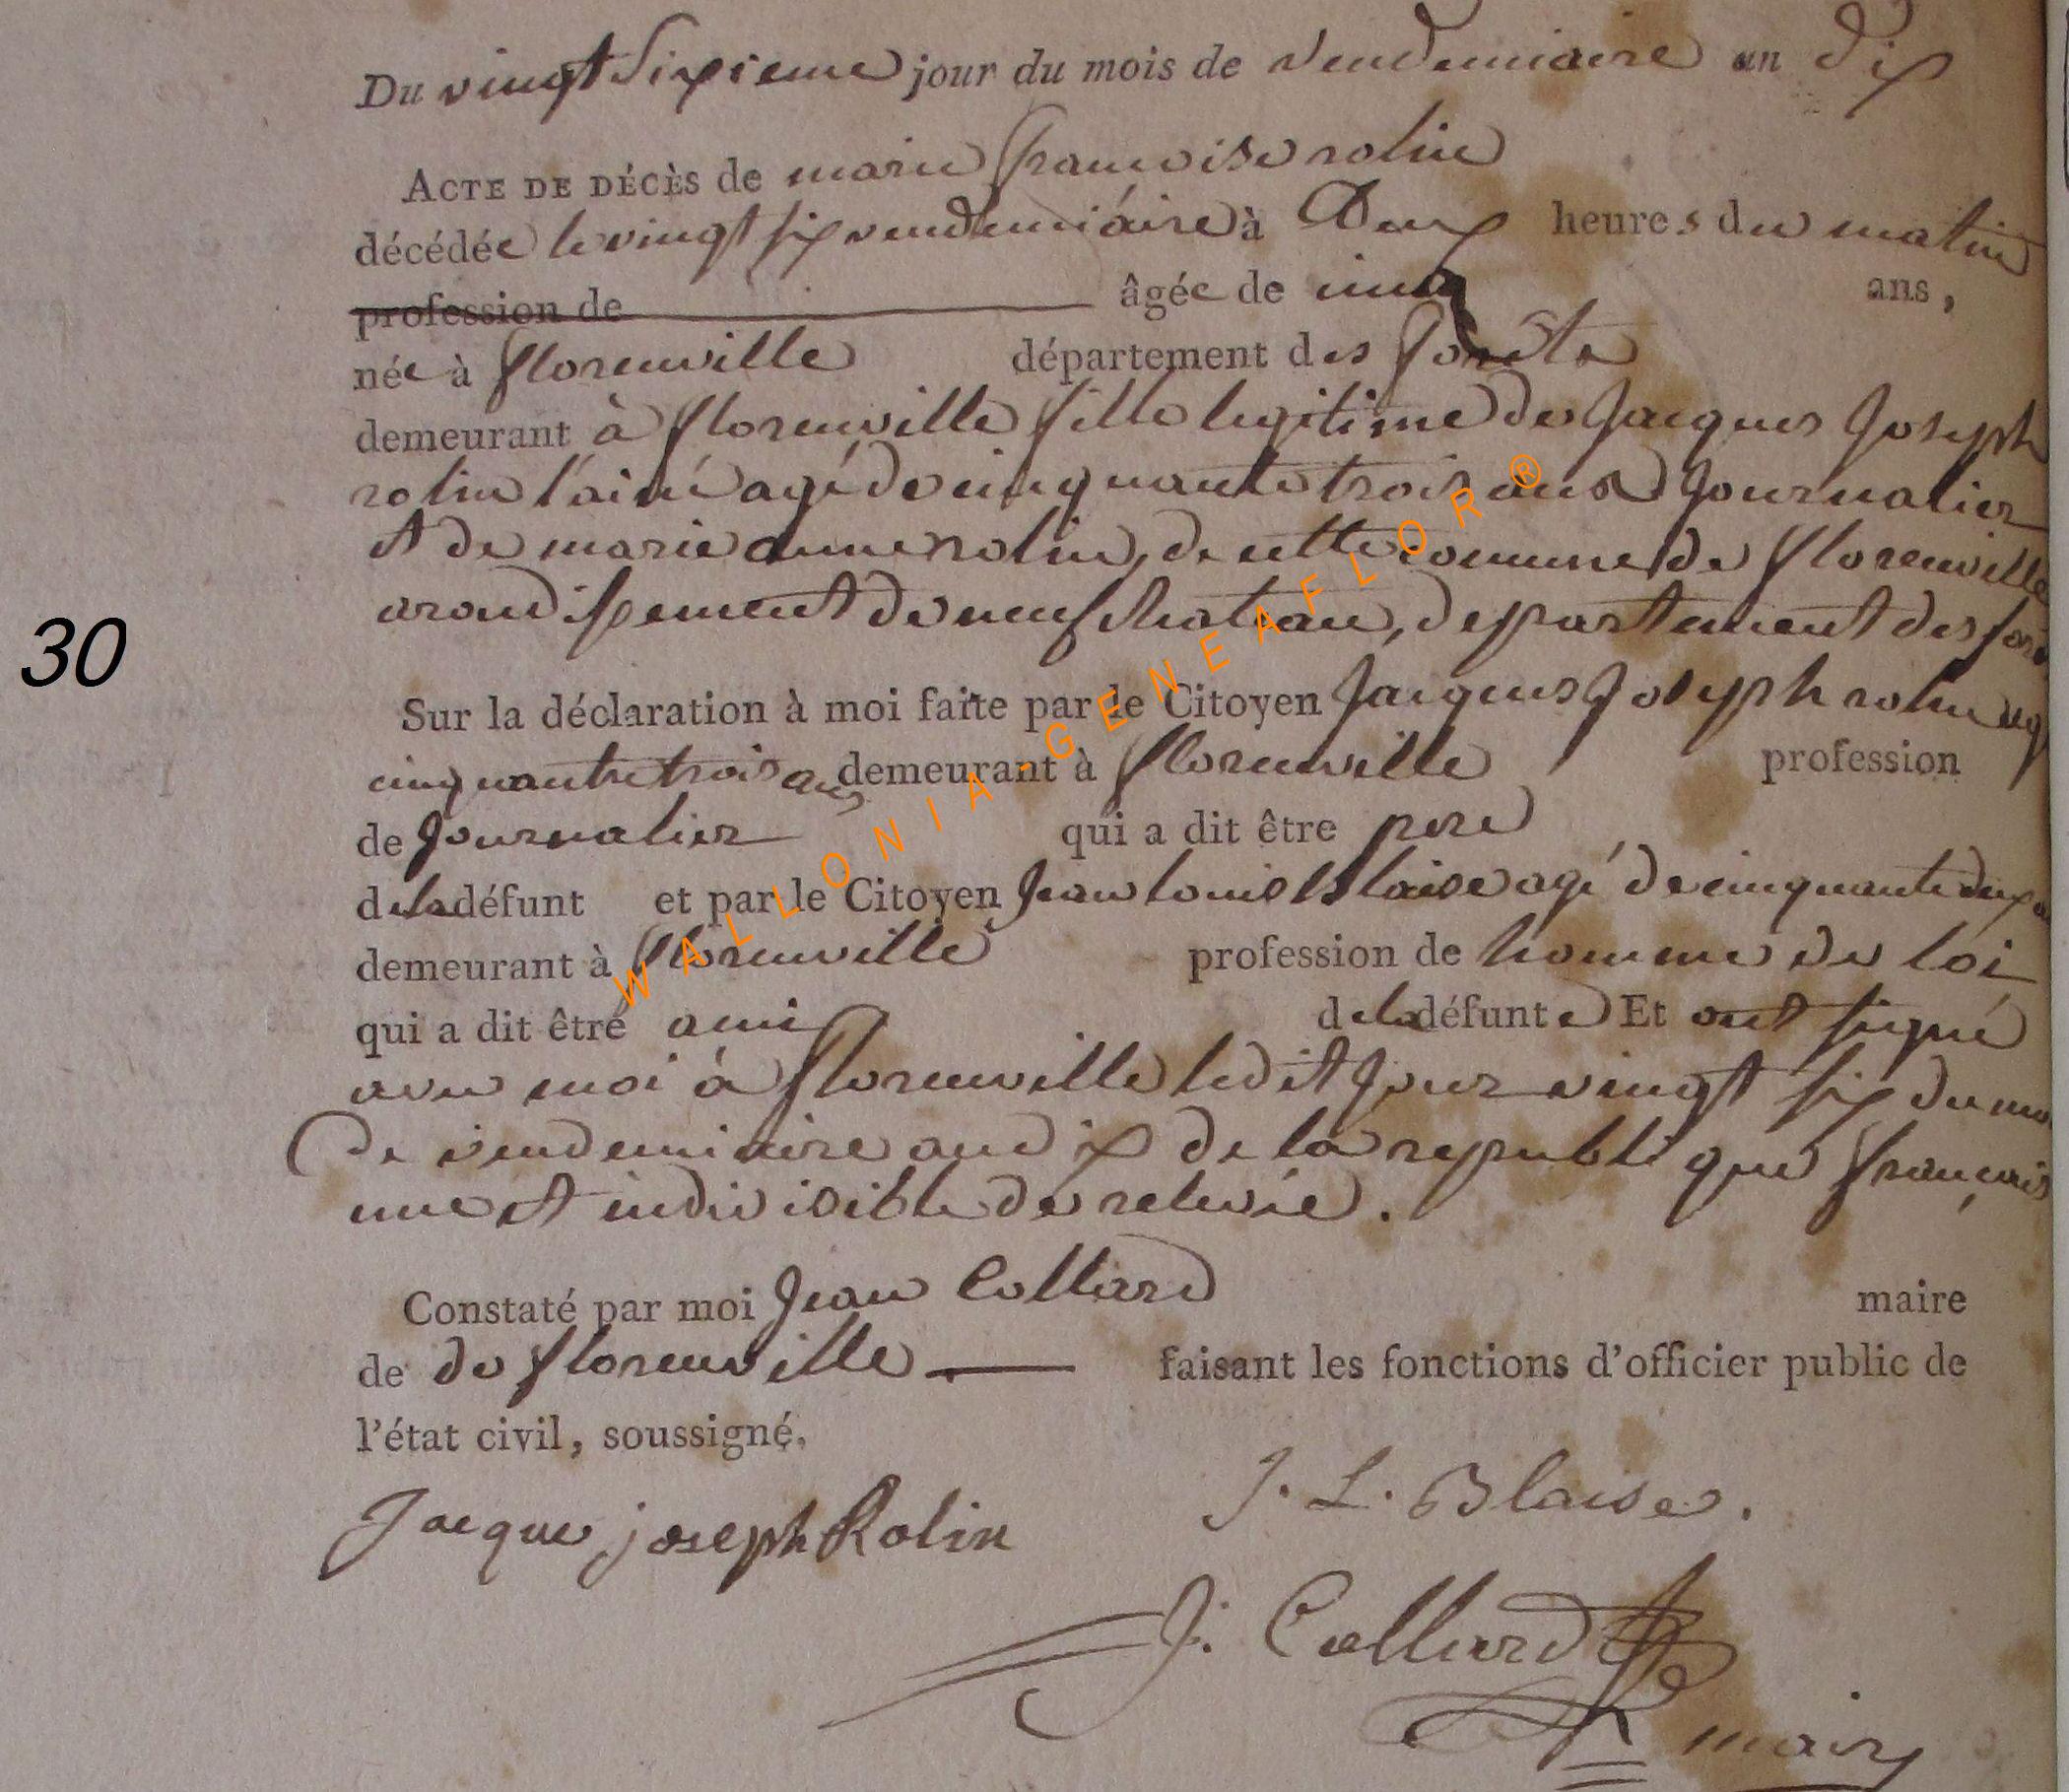 Du vingt Sixieme jour du mois de vendemiaire an dix
ACTE DE DÉCÈS de marie francoise rolin
décédée le vingt six vendemiaire à Deux heures du matin
profession de âgée de cinq ans,
née à florenville département des forêts
demeurant à florenville fille legitime de Jacques Joseph
rolin l'ainé agé de cinquante trois ans Journalier
et de marie anne rolin, de cette commune de florenville
arondissement de neufchateau, departement des forê
30
Sur la déclaration à moi faite par le Citoyen Jacques Joseph rolin ag
cinquante trois ans demeurant à florenville profession
de Journalier qui a dit être pere
de la défunt et par le Citoyen Jean louis Blaise agé de cinquante deux
demeurant à florenville profession de homme de loi
qui a dit être ami de la défunte Et ont signé
avec moi à florenville ledit Jour vingt six du mois
de vendemiaire an dix de la republique francais
une et indivisible de relevée.
Constaté par moi Jean Collard maire
de de florenville faisant les fonctions d'officier public de
l'état civil, soussigné.
Jacque joseph Rolin J. L. Blaise.
J. Collard
maire
WALLONIA-GENEAFLOR®